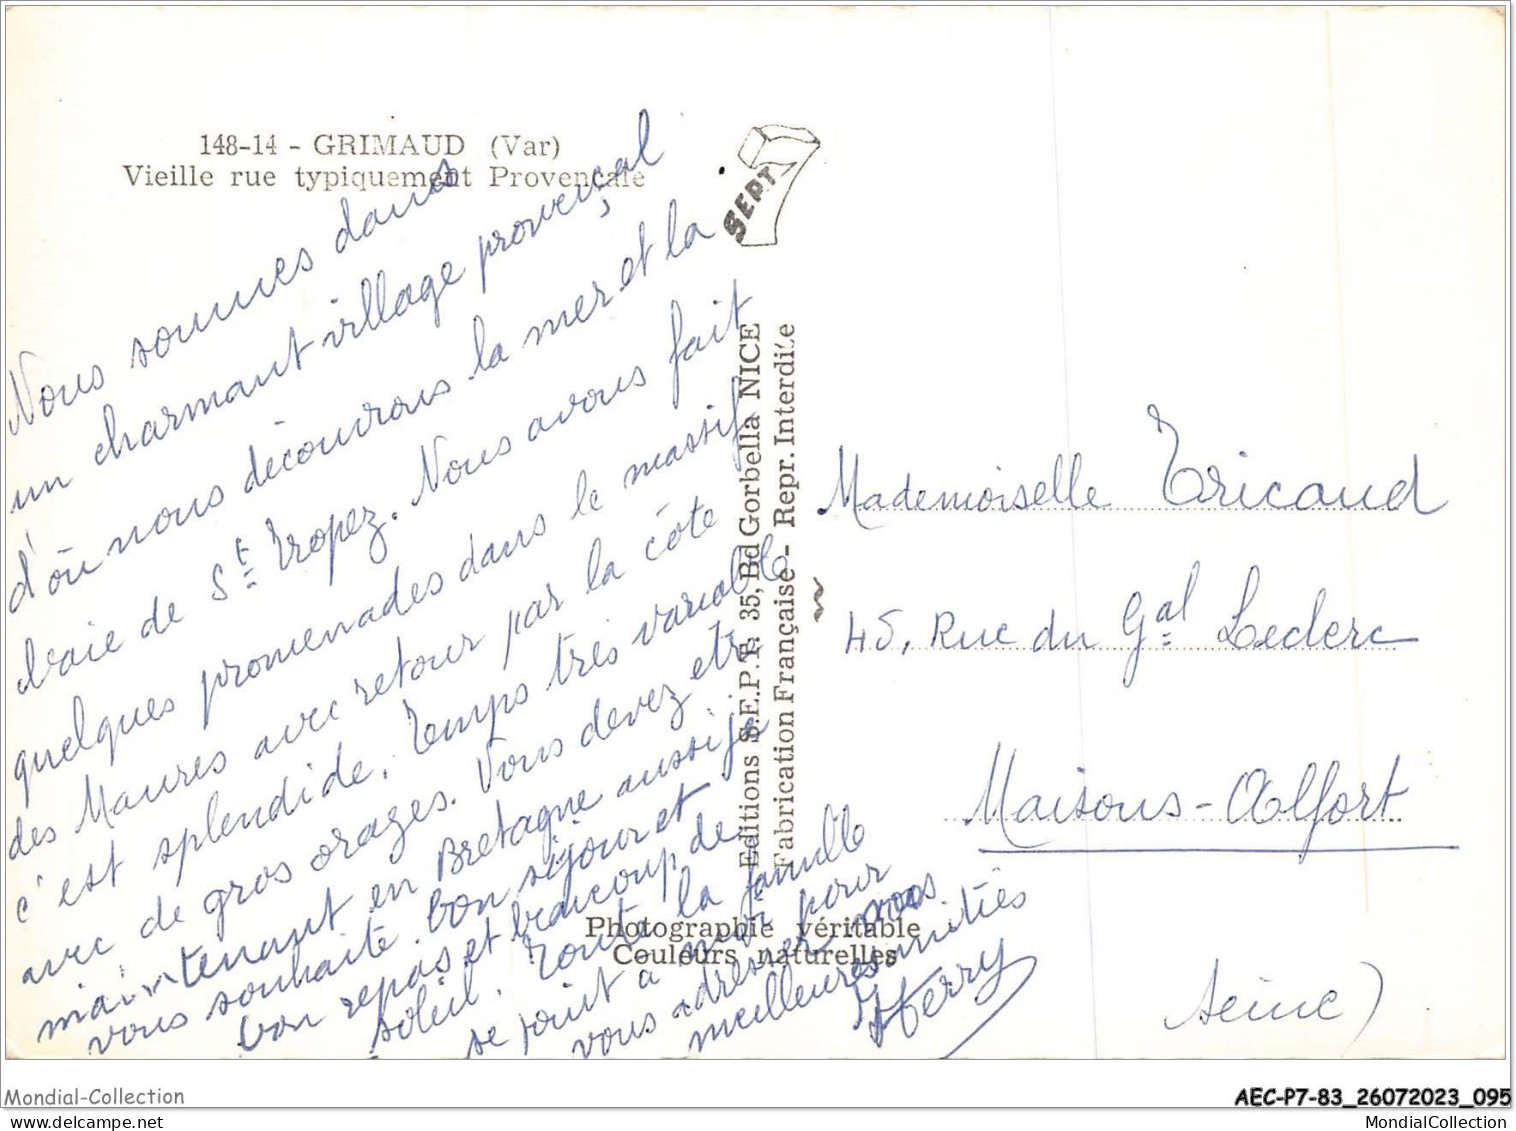 148-14 - GRIMAUD (Var)
Vieille rue typiquement Provençale
SEPT
Nous sommes dans
un charmant village provençal
d'où nous découvrons la mer et la
baie de St Tropez. Nous avons fait
quelques promenades dans le massif
des Maures avec retour par la côte
c'est splendide. Temps très variable
avec de gros orages. Vous devez être
maintenant en Bretagne aussi je
vous souhaite bon séjour et
bon repos et beaucoup de
soleil. Toute la famille
se joint à moi pour
vous adresser nos
meilleures amitiés
Editions S.E.P.T. 35, Bd Gorbella NICE
Fabrication Française - Repr. Interdite
Photographie véritable
Couleurs naturelles
Mademoiselle Tricaud
45, Rue du Gal Leclerc
Maisons-Alfort
Seine)
Mondial-Collection
AEC-P7-83_26072023_095
www.delcampe.net
MondialCollection